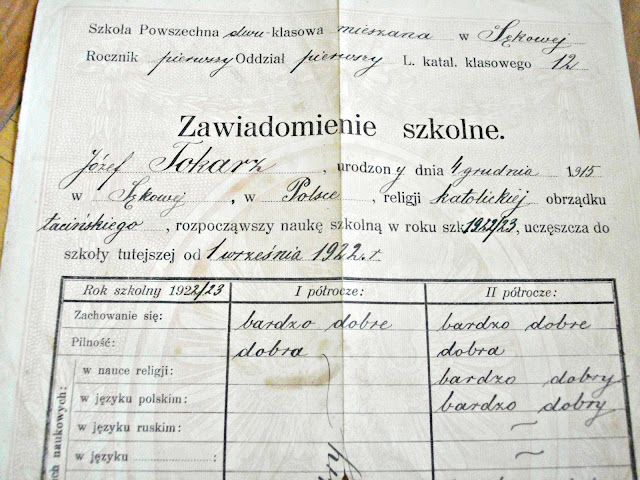 Szkoła Powszechna dwu-klasowa mieszana w Sękowej
Rocznik pierwszy Oddział pierwszy L. katal. klasowego 12
Zawiadomienie szkolne.
Józef Tokarz, urodzony dnia 4 grudnia 1915
w Sękowej, w Polsce, religji katolickiej obrządku
łacińskiego, rozpocząwszy naukę szkolną w roku szk. 1922/23, uczęszcza do
szkoły tutejszej od 1 września 1922 r.
Rok szkolny 1922/23 I półrocze: II półrocze:
Zachowanie się: bardzo dobre bardzo dobre
Pilność: dobra dobra
w nauce religji: bardzo dobry
w języku polskim: bardzo dobry
w języku ruskim: ~
w języku ~
naukowych: